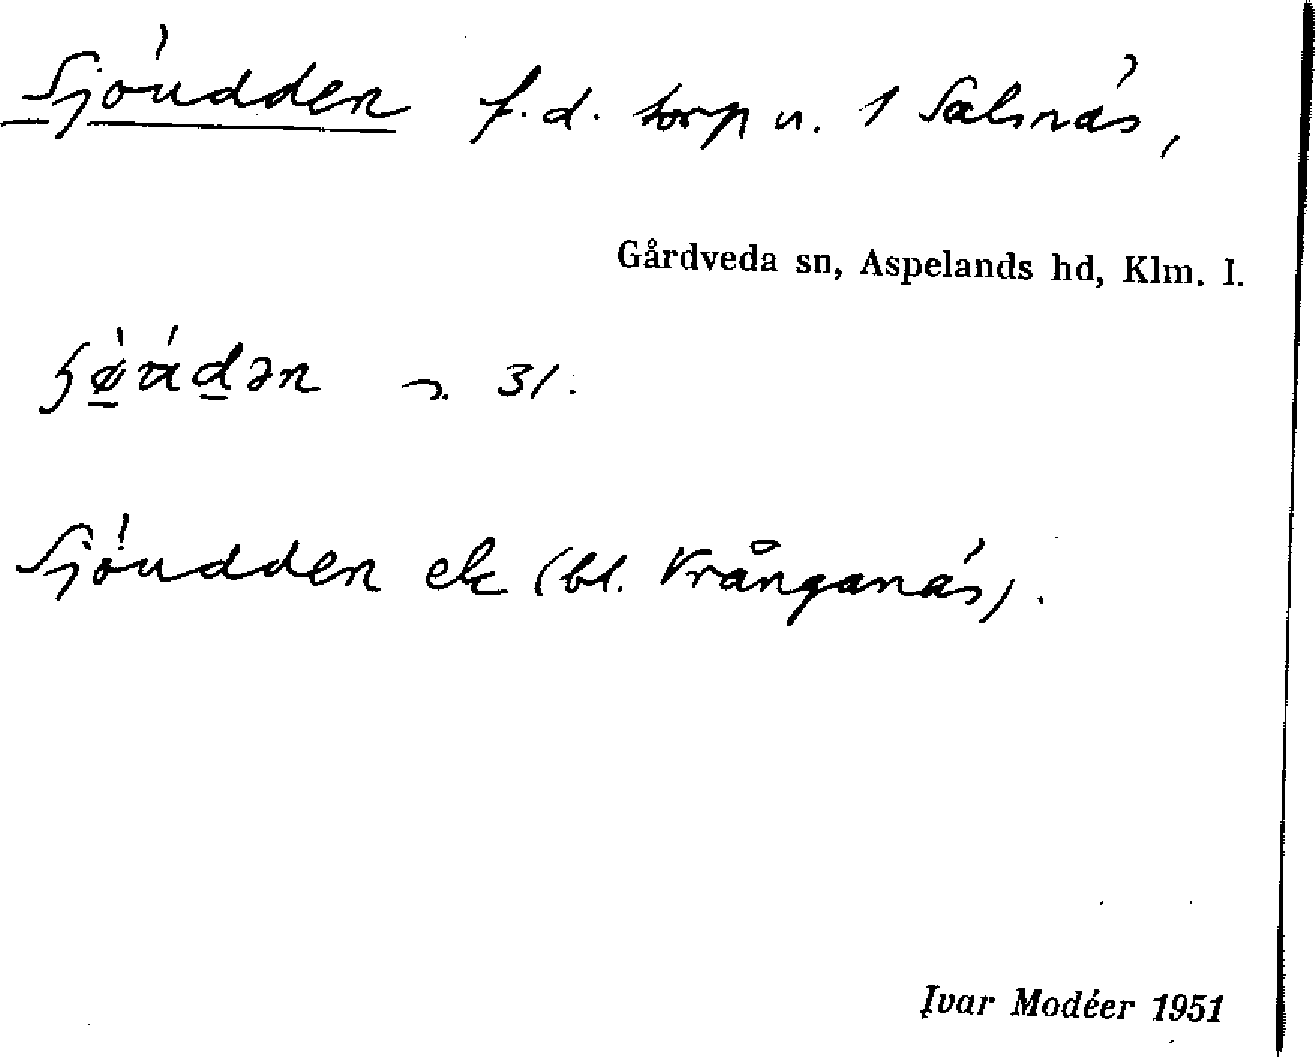 Sjöudden f.d. torp u. 1 Salsnäs,
Gårdveda sn, Aspelands hd, Klm. l.
31.
Sjöudden ek (bl. Vrånganäs).
Ivar Modéer 1951